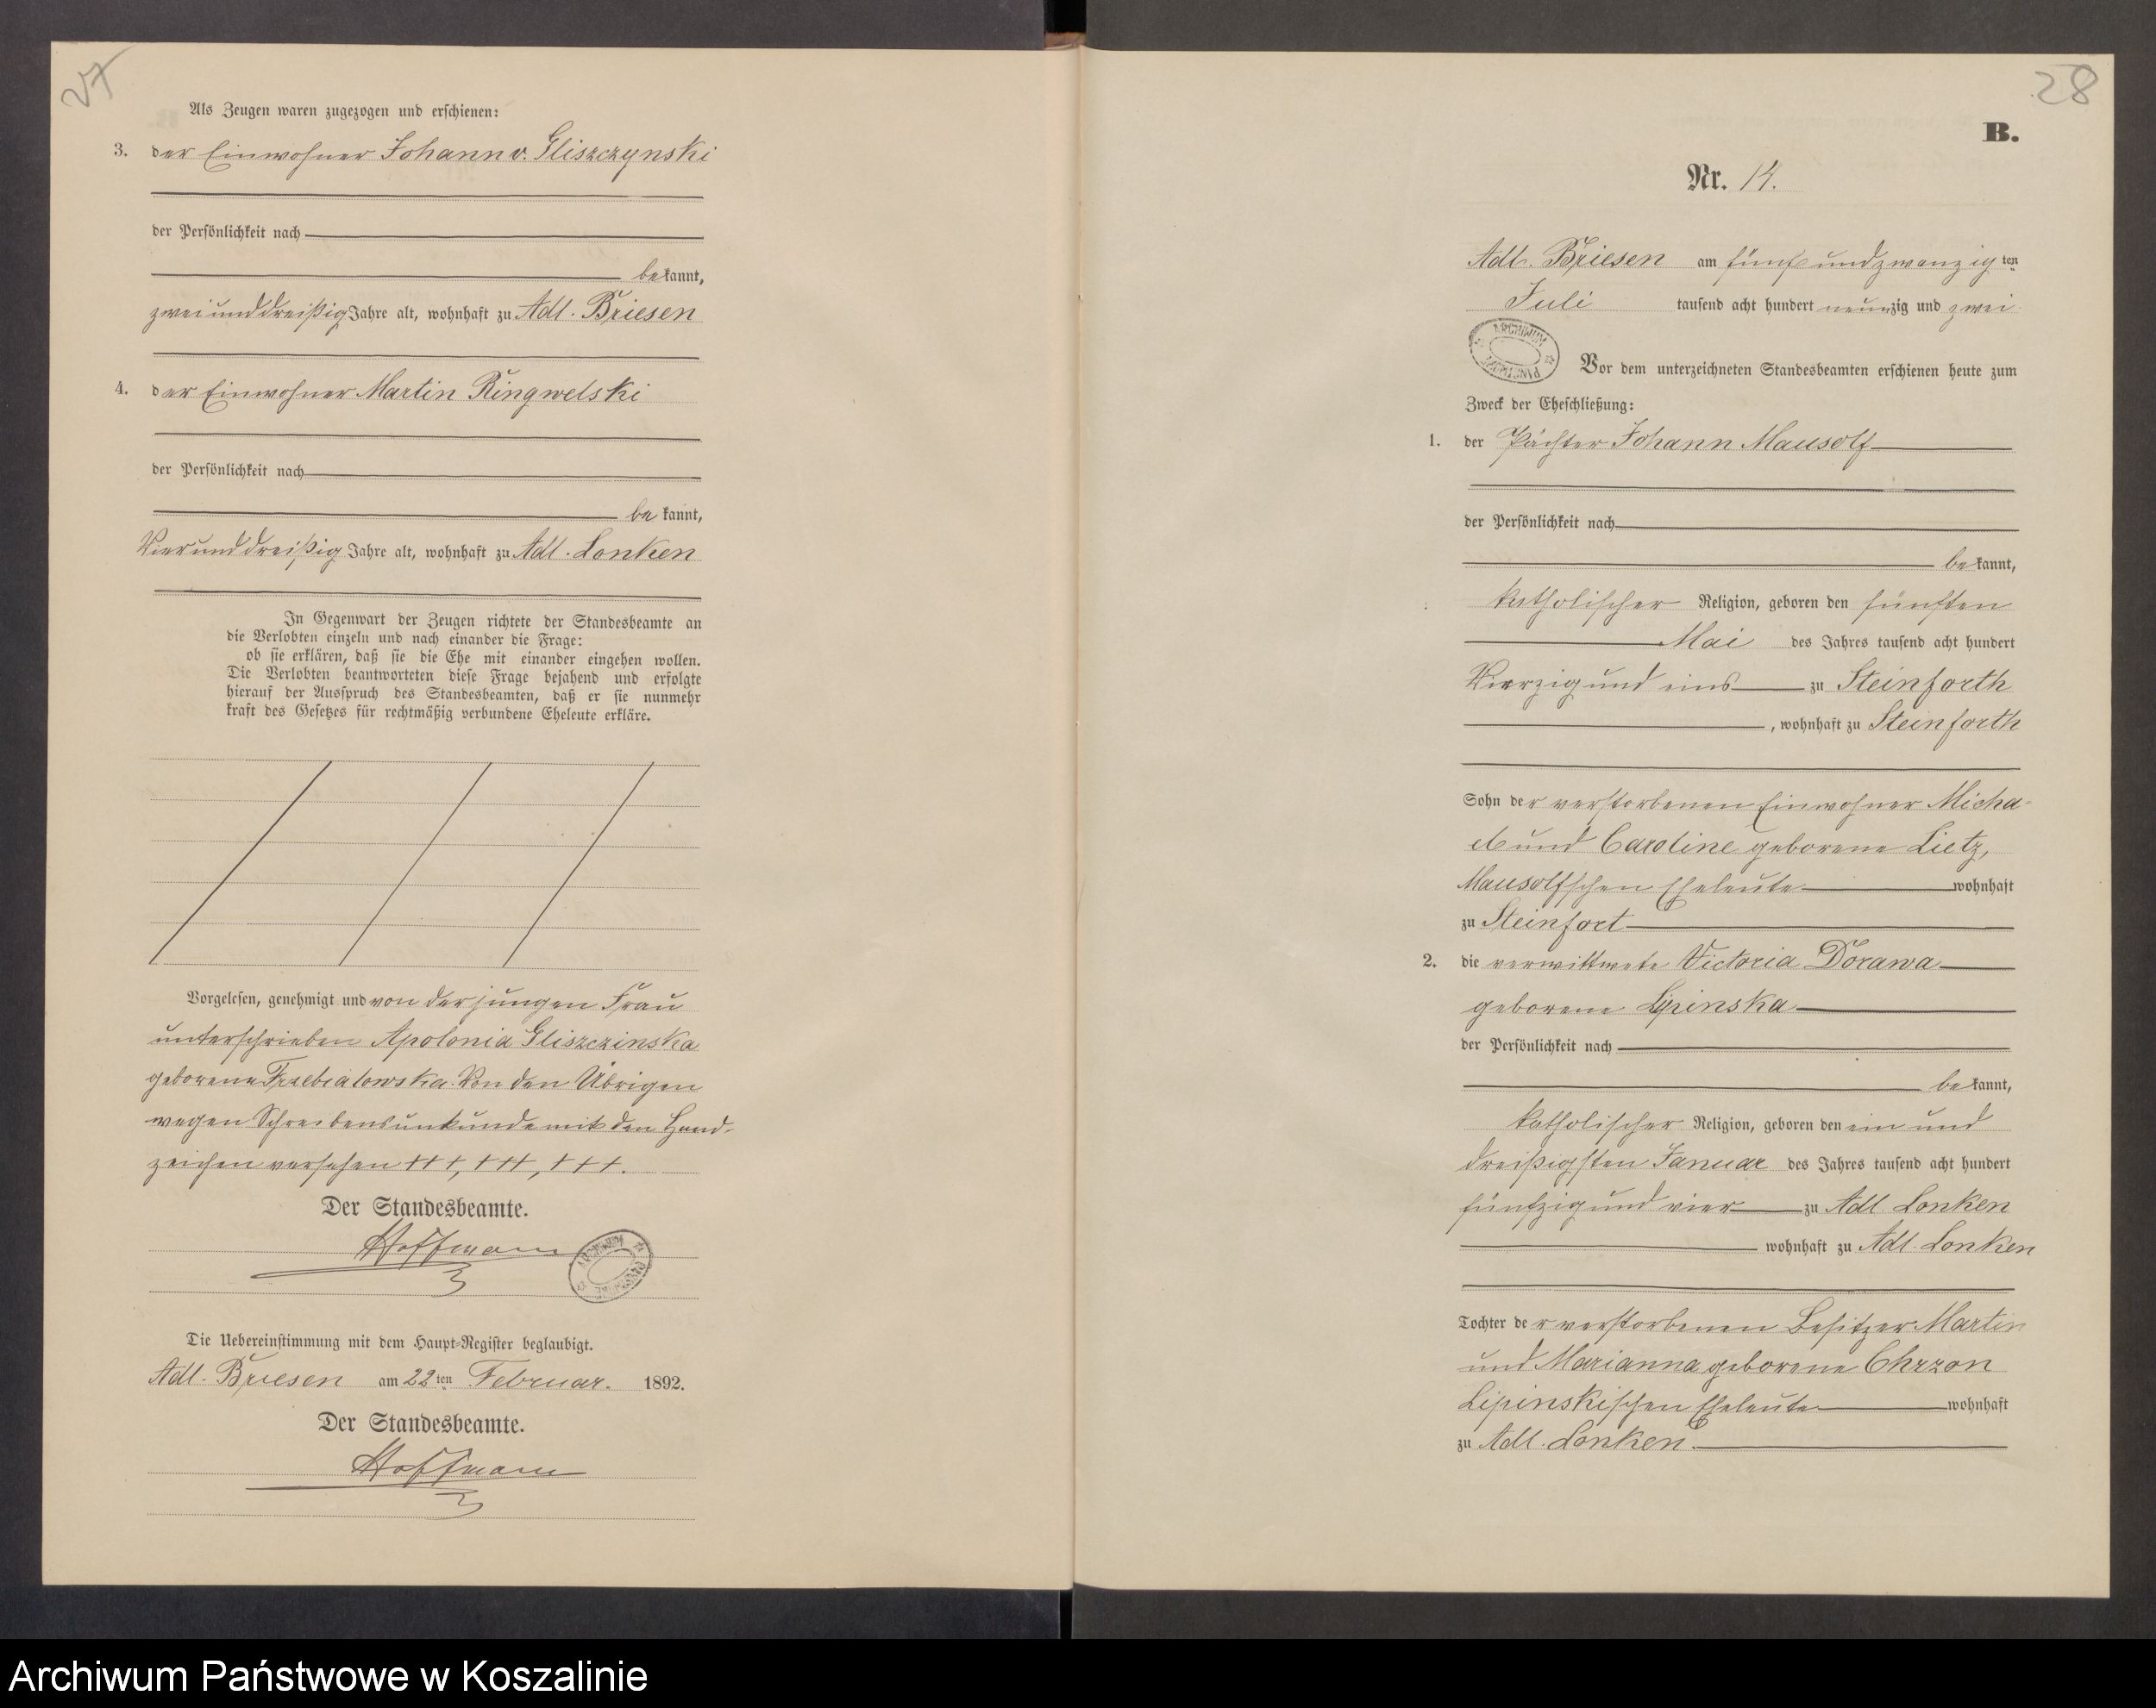 27
Als Zeugen waren zugezogen und erschienen:
3. der Einwohner Johann v. Gliszczynski
der Persönlichkeit nach
bekannt,
zweiunddreißig Jahre alt, wohnhaft zu Adl. Briesen
4. der Einwohner Martin Ringwelski
der Persönlichkeit nach
bekannt,
Vierunddreißig Jahre alt, wohnhaft zu Adl. Lonken
In Gegenwart der Zeugen richtete der Standesbeamte an
die Verlobten einzeln und nach einander die Frage:
ob sie erklären, daß sie die Ehe mit einander eingehen wollen.
Die Verlobten beantworteten diese Frage bejahend und erfolgte
hierauf der Ausspruch des Standesbeamten, daß er sie nunmehr
kraft des Gesetzes für rechtmäßig verbundene Eheleute erkläre.
Vorgelesen, genehmigt und von der jungen Frau
unterschrieben Apolonia Gliszczinska
geborene Trzebiatowska. Von den Übrigen
wegen Schreibensunkunde mit den Hand-
zeichen versehen +++, +++, +++.
Der Standesbeamte.
Hoffmann
Die Uebereinstimmung mit dem Haupt-Register beglaubigt.
Adl. Briesen am 22ten Februar. 1892.
Der Standesbeamte.
Hoffmann
28
B.
Nr. 14.
Adl. Briesen am fünfundzwanzigten
Juli tausend acht hundert neunzig und zwei
ARCHIWUM
Vor dem unterzeichneten Standesbeamten erschienen heute zum
Zweck der Eheschließung:
1. der Pächter Johann Mausolf
der Persönlichkeit nach
bekannt,
katholischer Religion, geboren den fünften
Mai des Jahres tausend acht hundert
Vierzig und eins zu Steinforth
, wohnhaft zu Steinforth
Sohn der verstorbenen Einwohner Micha-
el und Caroline geborene Lietz,
Mausolfschen Eheleute wohnhaft
zu Steinfort
2. die verwittwete Victoria Dorawa
geborene Lipinska
der Persönlichkeit nach
bekannt,
katholischer Religion, geboren den ein und
dreißigsten Januar des Jahres tausend acht hundert
fünfzig und vier zu Adl. Lonken
wohnhaft zu Adl. Lonken
Tochter der verstorbenen Besitzer Martin
und Marianna geborene Chrzon
Lipinskischen Eheleute wohnhaft
zu Adl. Lonken.
Archiwum Państwowe w Koszalinie